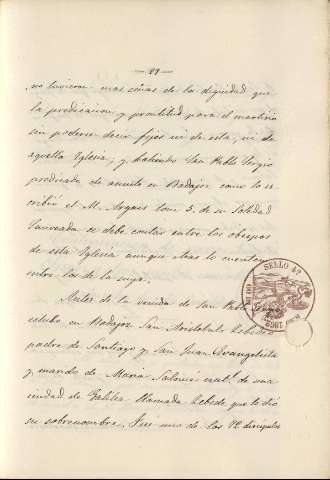 — 29 —
no tuvieron mas señas de la dignidad que
la predicacion y prontitud para el martirio
sin poderse decir fijos ni de esta, ni de
aquella Iglesia; y habiendo San Pablo Sergio
predicado de asiento en Badajoz como lo es-
cribió el M. Argaiz tom 5. de su Soledad
Laureada se debe contar entre los obispos
de esta Iglesia aunque otras lo cuenten
entre los de la suya.
Antes de la venida de San Pablo Sergio
estubo en Badajoz San Aristobulo Zebedeo
padre de Santiago y San Juan Evangelista
y marido de Maria Salomé nat.l de una
ciudad de Galilea llamada Zebede que le dió
su sobrenombre. Fue uno de los 72 discipulos
SELLO 4º